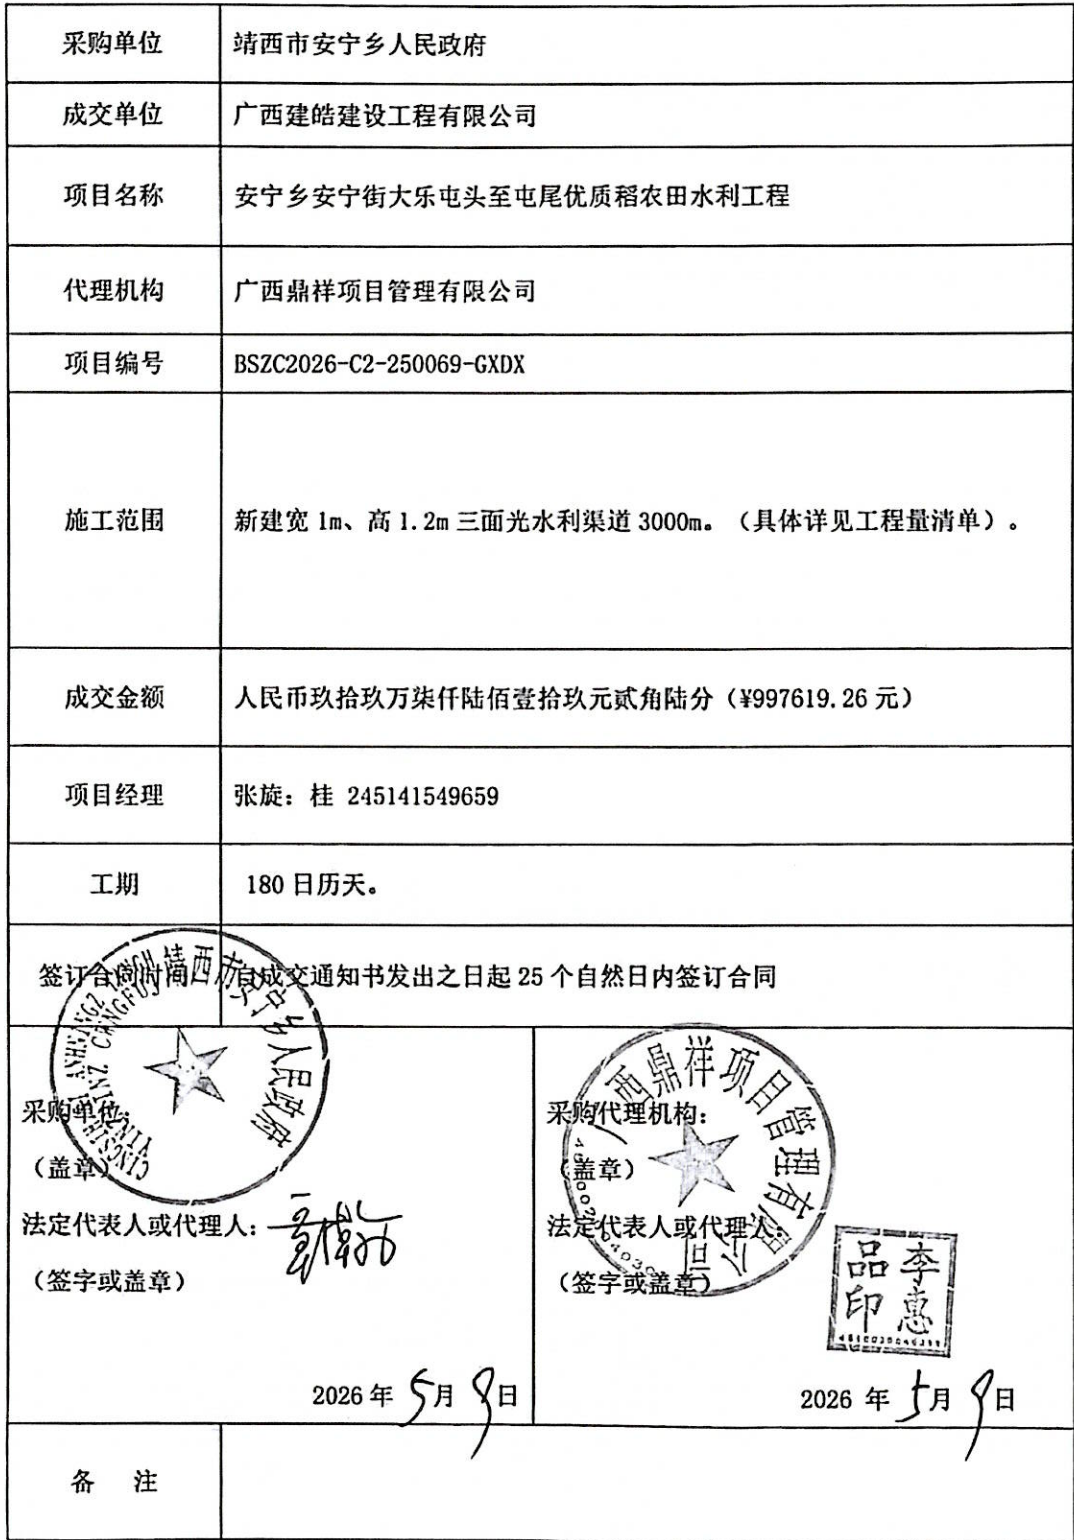 采购单位 靖西市安宁乡人民政府
成交单位 广西建皓建设工程有限公司
项目名称 安宁乡安宁街大乐屯头至屯尾优质稻农田水利工程
代理机构 广西鼎祥项目管理有限公司
项目编号 BSZC2026-C2-250069-GXDX
施工范围 新建宽 1m、高 1.2m 三面光水利渠道 3000m。（具体详见工程量清单）。
成交金额 人民币玖拾玖万柒仟陆佰壹拾玖元贰角陆分（¥997619.26 元）
项目经理 张旋：桂 245141549659
工期 180 日历天。
签订合同时间 自成交通知书发出之日起 25 个自然日内签订合同
靖西市安宁乡人民政府
采购单位：
（盖章）
法定代表人或代理人：
（签字或盖章）
2026 年 5月 9日
广西鼎祥项目管理有限公司
采购代理机构：
（盖章）
法定代表人或代理人：
（签字或盖章）
李惠品印
2026 年 5月 9日
备 注